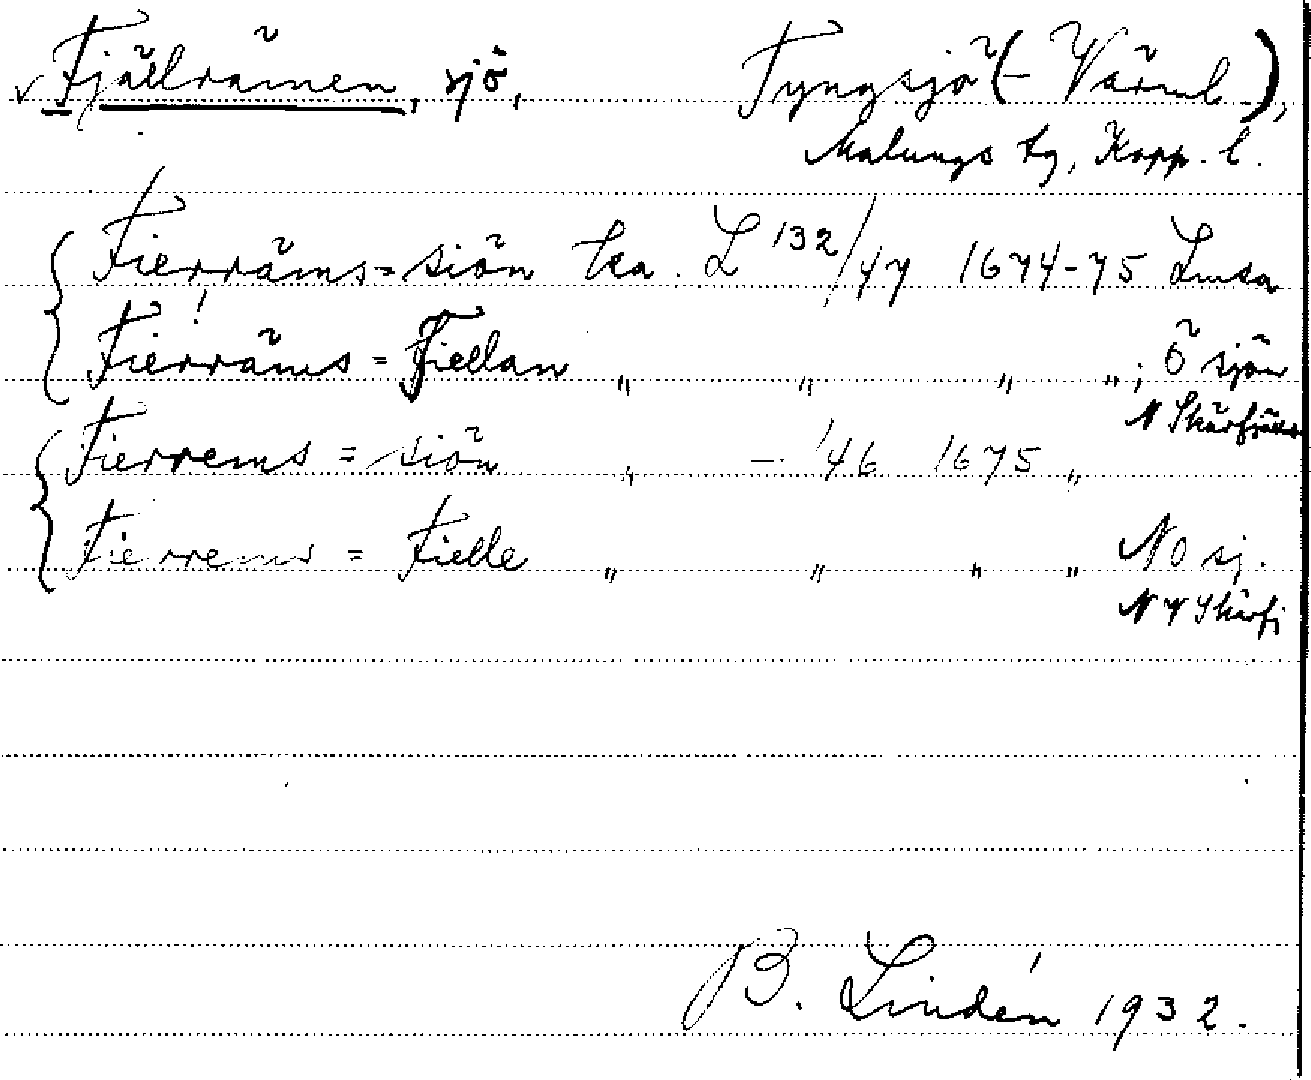 √ Fjällrämen, sjö, Tyngsjö (- Värml.),
Malungs tg, Kopp. l.
Fierräms=siön ka. L 132/47 1674-75 Lmsa
!
Fierräms=Fiellan " " " "; Ö sjön
N Skärfjäls
Fierrems=siön " - '46 1675 "
Fierrems=Fielle " " " " NO sj.
NV Skärfj
B. Lindén 1932.